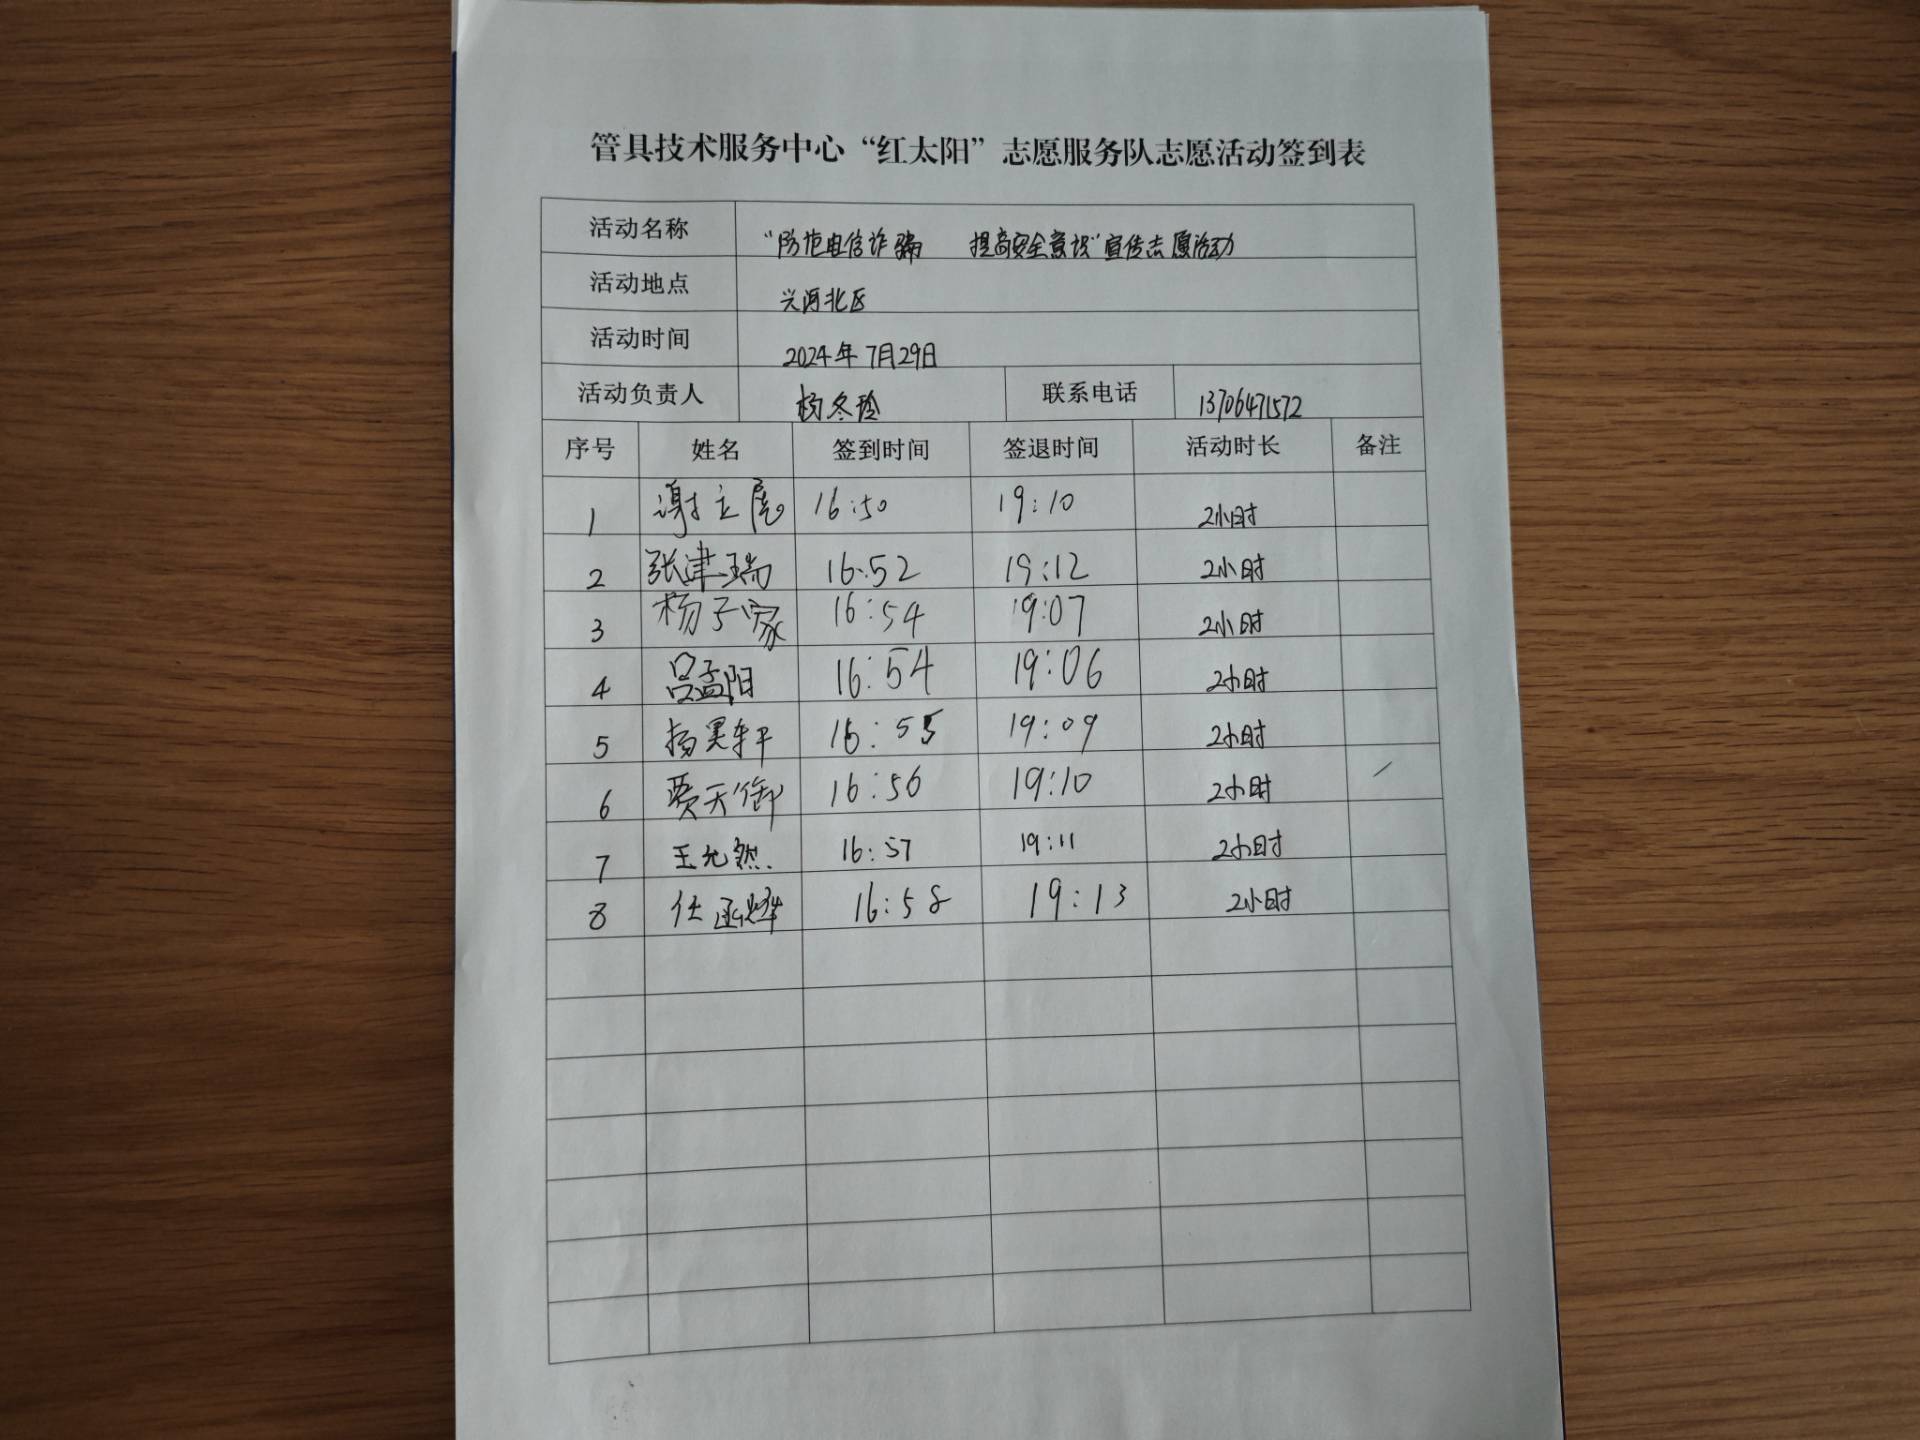 管具技术服务中心“红太阳”志愿服务队志愿活动签到表
活动名称 “防范电信诈骗 提高安全意识”宣传志愿活动
活动地点 兴河北区
活动时间 2024年7月29日
活动负责人 杨冬玲 联系电话 13706471572
序号 姓名 签到时间 签退时间 活动时长 备注
1 谢立展 16:50 19:10 2小时
2 张津瑞 16:52 19:12 2小时
3 杨子家 16:54 19:07 2小时
4 吕孟阳 16:54 19:06 2小时
5 杨昊轩 16:55 19:09 2小时
6 贾天御 16:56 19:10 2小时
7 王允然 16:57 19:11 2小时
8 任函烨 16:58 19:13 2小时